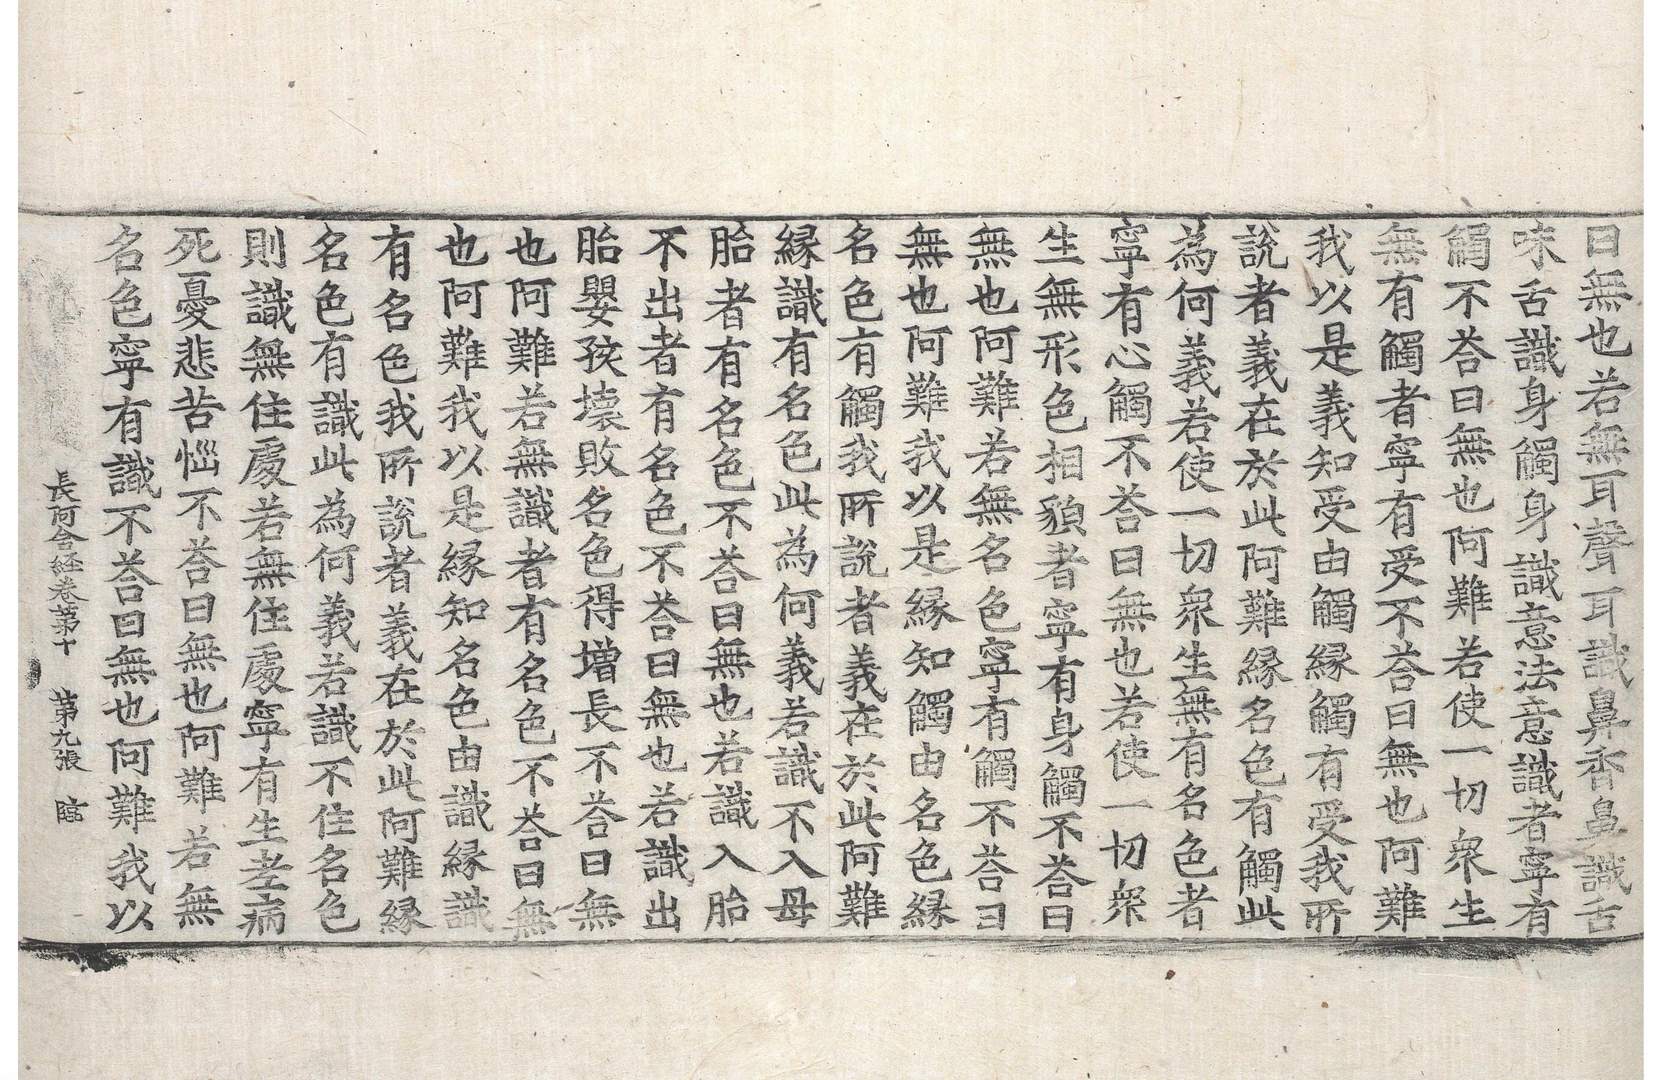 曰無也若無耳聲耳識鼻香鼻識舌
味舌識身觸身識意法意識者寧有
觸不荅曰無也阿難若使一切衆生
無有觸者寧有受不荅曰無也阿難
我以是義知受由觸緣觸有受我所
說者義在於此阿難緣名色有觸此
為何義若使一切衆生無有名色者
寧有心觸不荅曰無也若使一切衆
生無形色相貌者寧有身觸不荅曰
無也阿難若無名色寧有觸不荅曰
無也阿難我以是緣知觸由名色緣
名色有觸我所說者義在於此阿難
緣識有名色此為何義若識不入母
胎者有名色不荅曰無也若識入胎
不出者有名色不荅曰無也若識出
胎嬰孩壞敗名色得增長不荅曰無
也阿難若無識者有名色不荅曰無
也阿難我以是緣知名色由識緣識
有名色我所說者義在於此阿難緣
名色有識此為何義若識不住名色
則識無住處若無住處寧有生老病
死憂悲苦惱不荅曰無也阿難若無
名色寧有識不荅曰無也阿難我以
長阿含経卷第十 第九張 臨